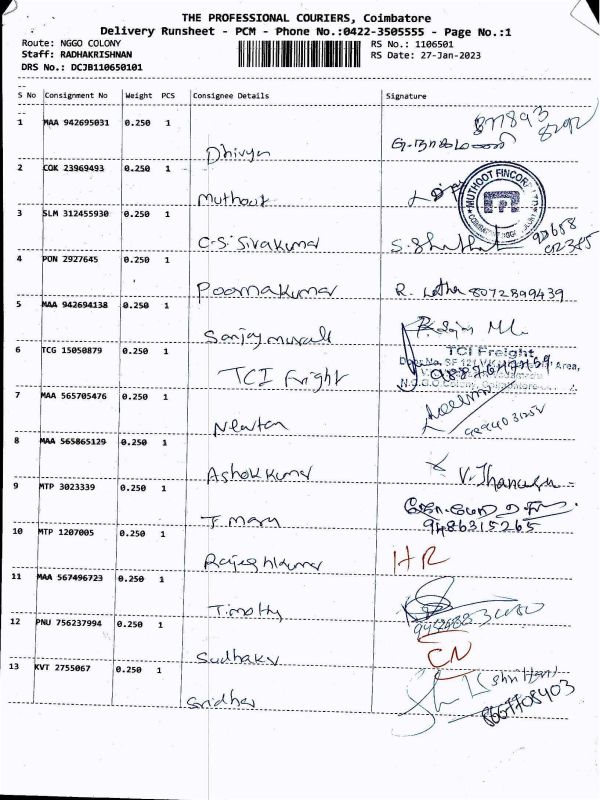 THE PROFESSIONAL COURIERS, Coimbatore
Delivery Runsheet - PCM - Phone No.:0422-3505555 - Page No.:1
Route: NGGO COLONY
RS No.: 1106501
Staff: RADHAKRISHNAN
RS Date: 27-Jan-2023
DRS No.: DCJB110650101
S No Consignment No Weight PCS Consignee Details Signature
1 MAA 942695031 0.250 1
Dhivya
2 COK 23969493 0.250 1
Muthoot
MUTHOOT FINCORP
3 SLM 312455930 0.250 1
C.S. Sivakumar
4 PON 2927645 0.250 1
Poornakumar R. Latha 8072899439
5 MAA 942694138 0.250 1
Sanjay murali
6 TCG 15050879 0.250 1
TCI Freight
TCI Fright
7 MAA 565705476 0.250 1
Newton
8 MAA 565865129 0.250 1
Ashok kumar
9 MTP 3023339 0.250 1
T. Mary 9486315265
10 MTP 1207005 0.250 1
Rajesh kumar HR
11 MAA 567496723 0.250 1
Timothy
12 PNU 756237994 0.250 1
Sudhakar CN
13 KVT 2755067 0.250 1
Sridhar 8667708403